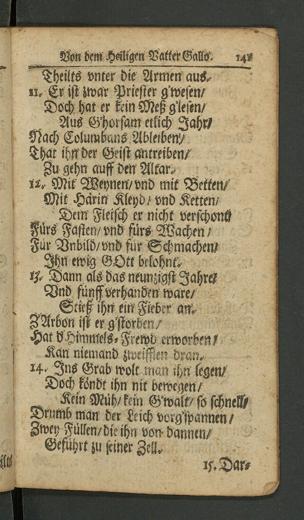 Von dem Heiligen Vatter Gallo. 141
Theilts vnter die Armen aus.
11. Er ist zwar Priester g'wesen/
Doch hat er kein Meß g'lesen/
Aus G'horsam etlich Jahr/
Nach Columbans Ableiben/
That ihn der Geist antreiben/
Zu gehn auff den Altar.
12. Mit Weynen/ vnd mit Betten/
Mit Härin Kleyd/ vnd Ketten/
Dem Fleisch er nicht verschont/
Fürs Fasten/ vnd fürs Wachen/
Für Vnbild/ vnd für Schmachen/
Ihn ewig GOtt belohnt.
13. Dann als das neunzigst Jahre/
Vnd fünff verhanden ware/
Stieß ihn ein Fieber an.
Z'Arbon ist er g'storben/
Hat d'Himmels-Frewd erworben/
Kan niemand zweifflen dran.
14. Ins Grab wolt man ihn legen/
Doch köndt ihn nit bewegen/
Kein Müh/ kein G'walt/ so schnell/
Drumb man der Leich vorg'spannen/
Zwey Füllen/ die ihn von dannen/
Geführt zu seiner Zell.
15. Dar-